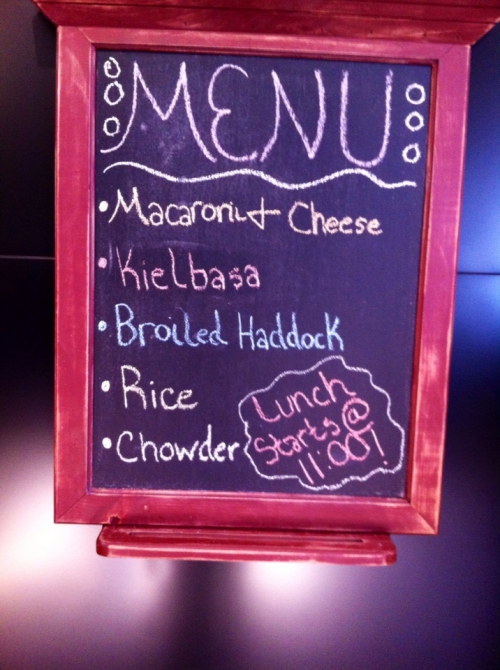 MENU
• Macaroni + Cheese
• Kielbasa
• Broiled Haddock
• Rice
• Chowder
Lunch
Starts @
11:00!